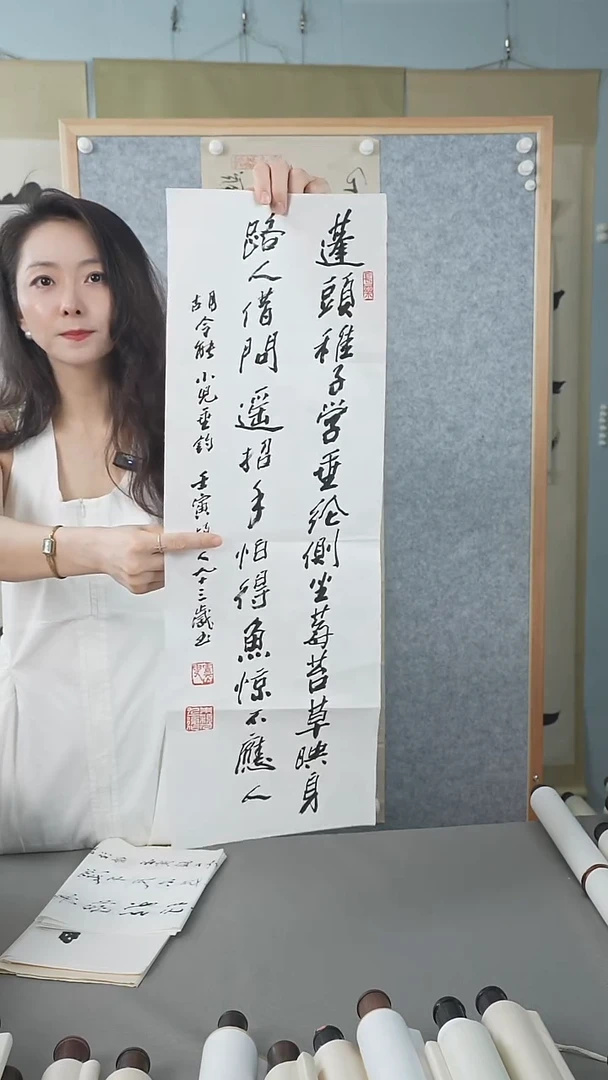 蓬頭稚子学垂纶側坐莓苔草映身
路人借問遥招手怕得魚惊不應人
胡令能小兒垂钓壬寅 人九十三歲书